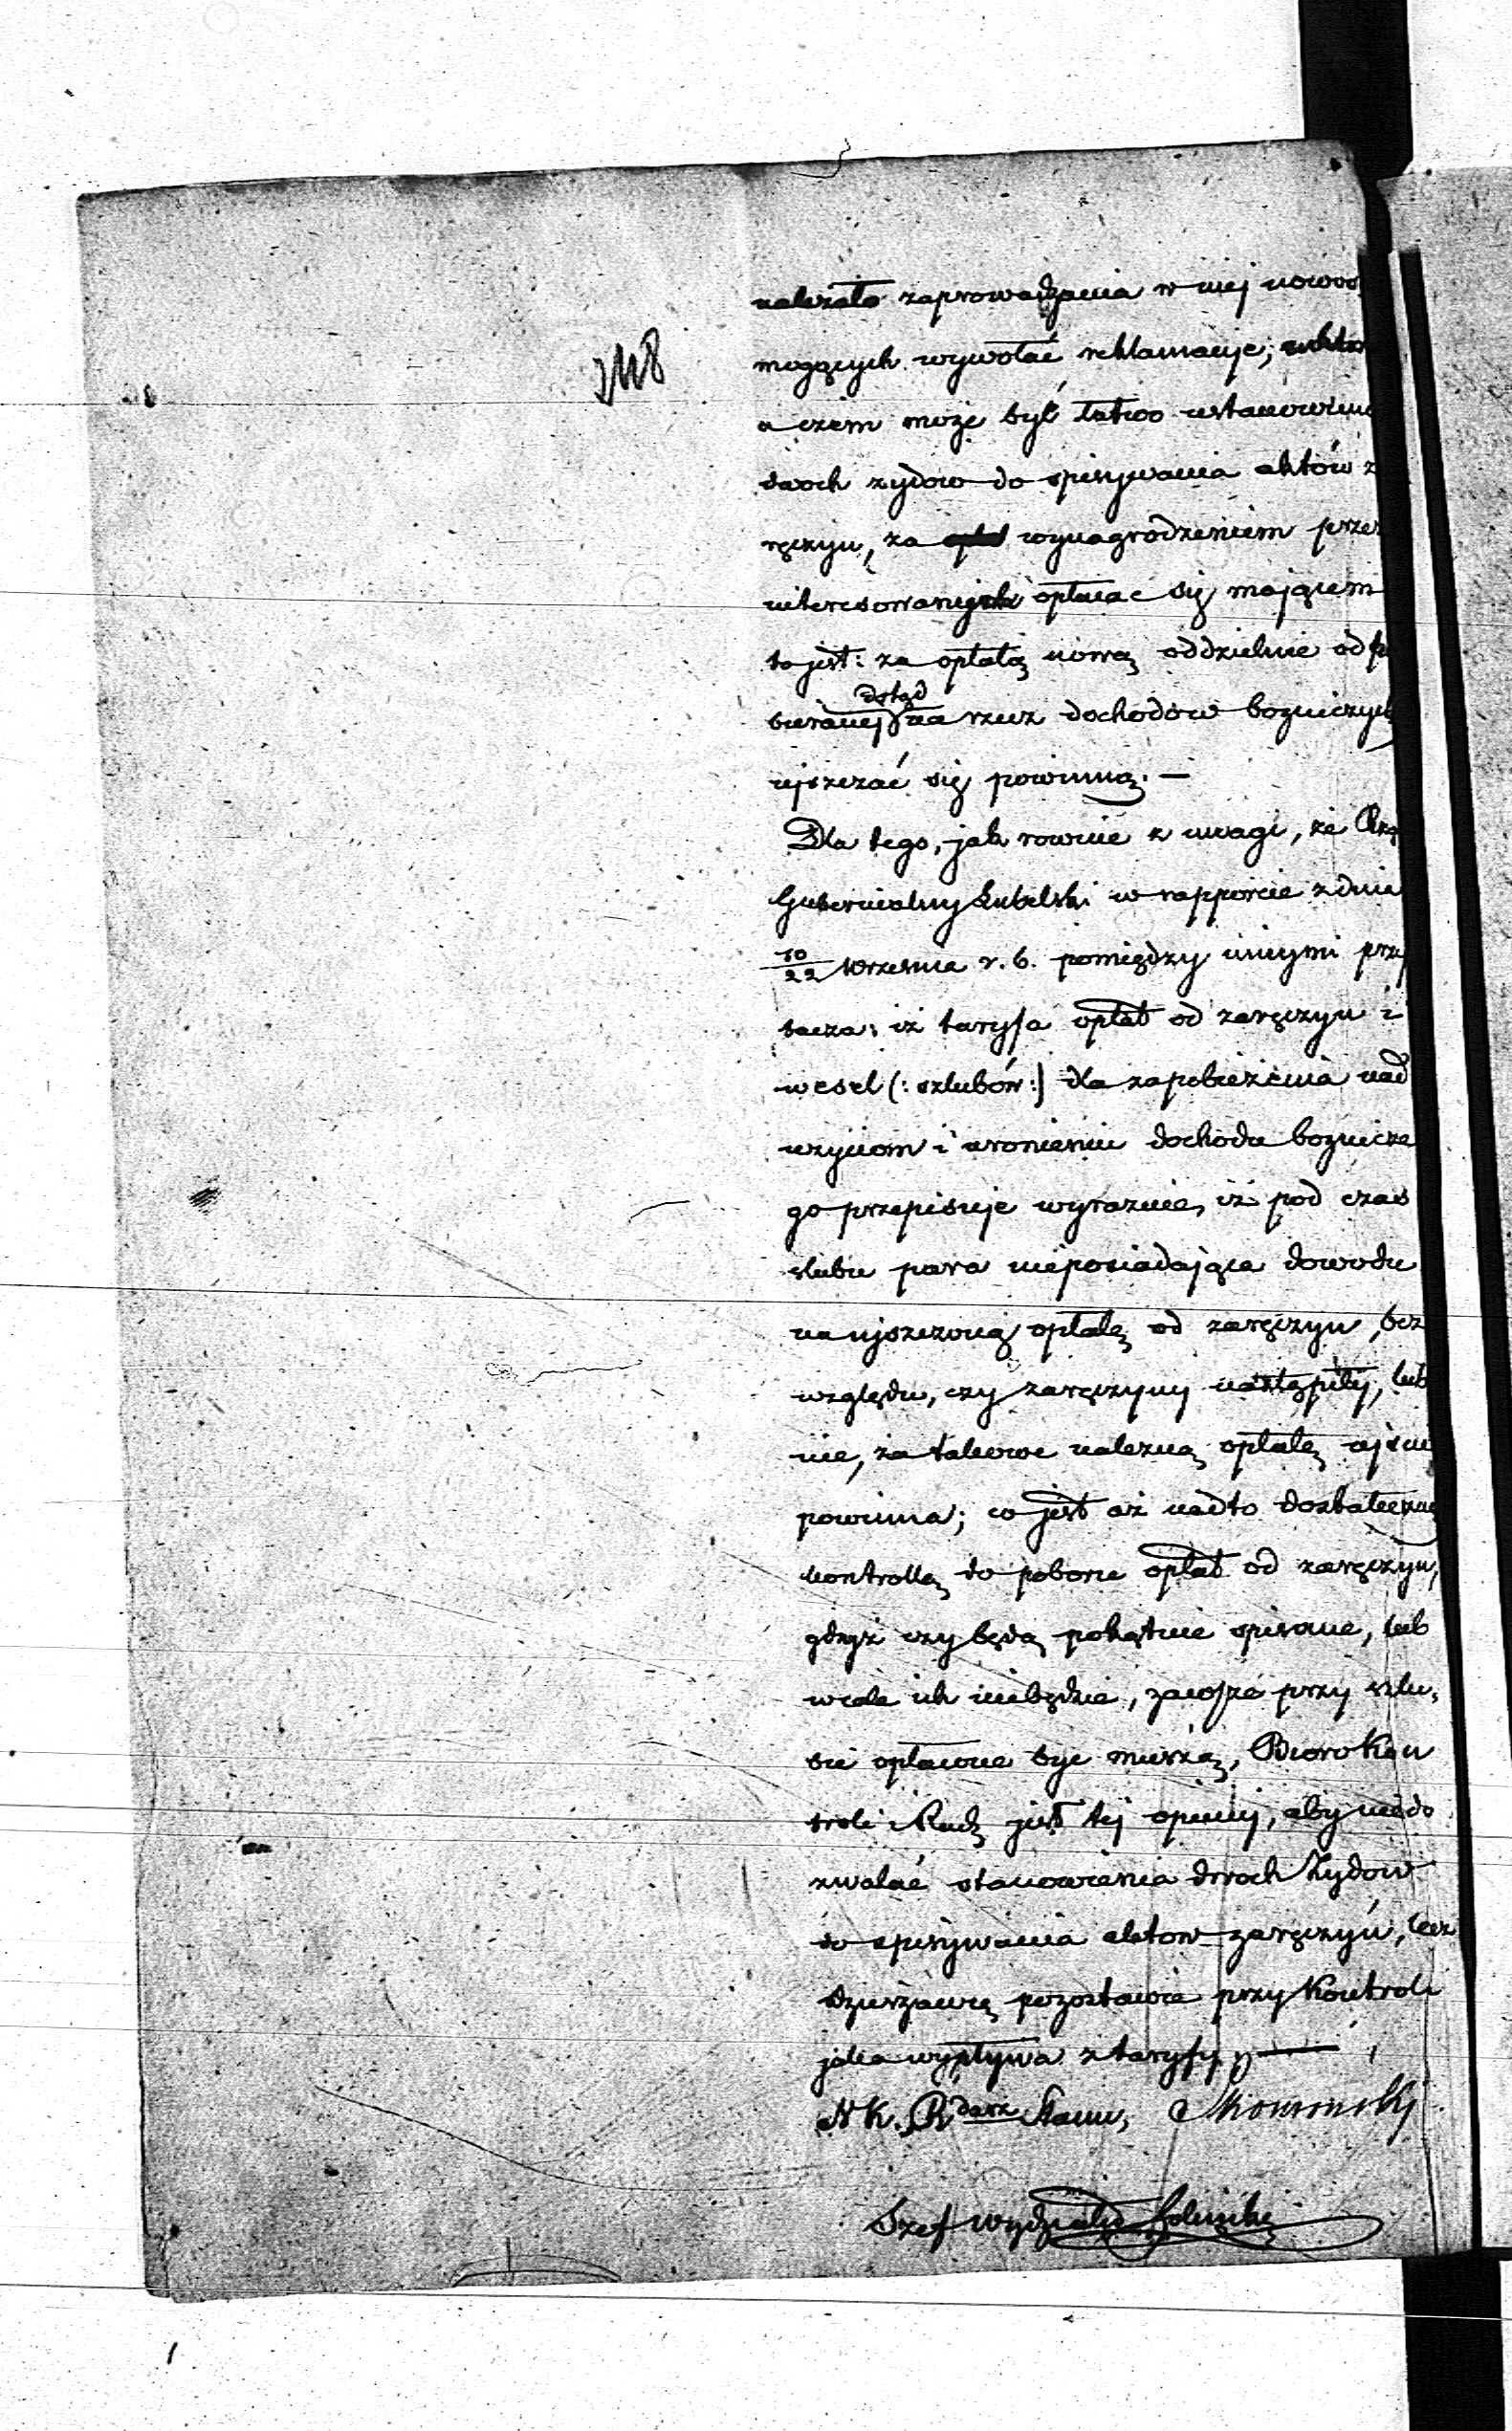 248
należało zaprowadzania w niej nowoś
mogących wywołać reklamacje;
a czem może być łatwo ustanowieni
dwoch zydow do spisywania aktów z
ręczyn, za wynagrodzeniem przez
interesowanych opłacac się mającem
to jest: za opłatą nową oddzielnie od po
dotąd
bieranej na rzecz dochodów bozniczych
uiszczać się powinną. —
Dla tego, jak rownie z uwagi, że Rzą
Gubernialny Lubelski w rapporcie z dnia
10/22 Września r. b. pomiędzy innymi przy
tacza: iż taryfa opłat od zaręczyn i
wesel (: szlubów :) dla zapobieżenia nad
użyciom i uronieniu dochodu boznicze
go przepisuje wyraznie, iż pod czas
slubu para nieposiadająca dowodu
na ujszczoną opłatę od zaręczyn, bez
względu, czy zaręczyny nastąpiły, lub
nie, za takowe należną opłatę ujścić
powinna; co jest aż nadto dostateczną
kontrollą do poboru opłat od zaręczyn,
gdyż czy będą pokątnie spisane, lub
wcale ich niebędzie, zawsze przy szlu,
bie opłacone byc muszą, Bioro Kon
troli i Rach jest tej opinij, aby niedo
zwalać stanowienia dwoch Zydow
do spisywania aktow zaręczyn, lecz
dzierżawię pozostawia przy Kontroli
jaka wypływa z taryfy
N K.
Szef Wydziału